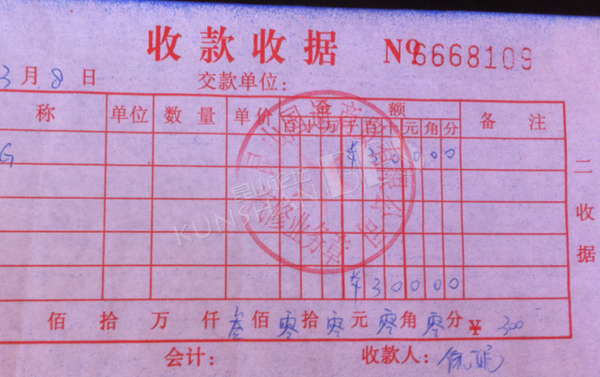 收款收据 № 6668109
3月8日 交款单位:
称 单位 数量 单价 金额 备注
百 十 万 千 百 十 元 角 分
G ¥30000
二收据
¥30000
佰 拾 万 仟 叁佰 零拾 零元 零角 零分 ¥ 300
会计: 收款人:
KUNSHAN